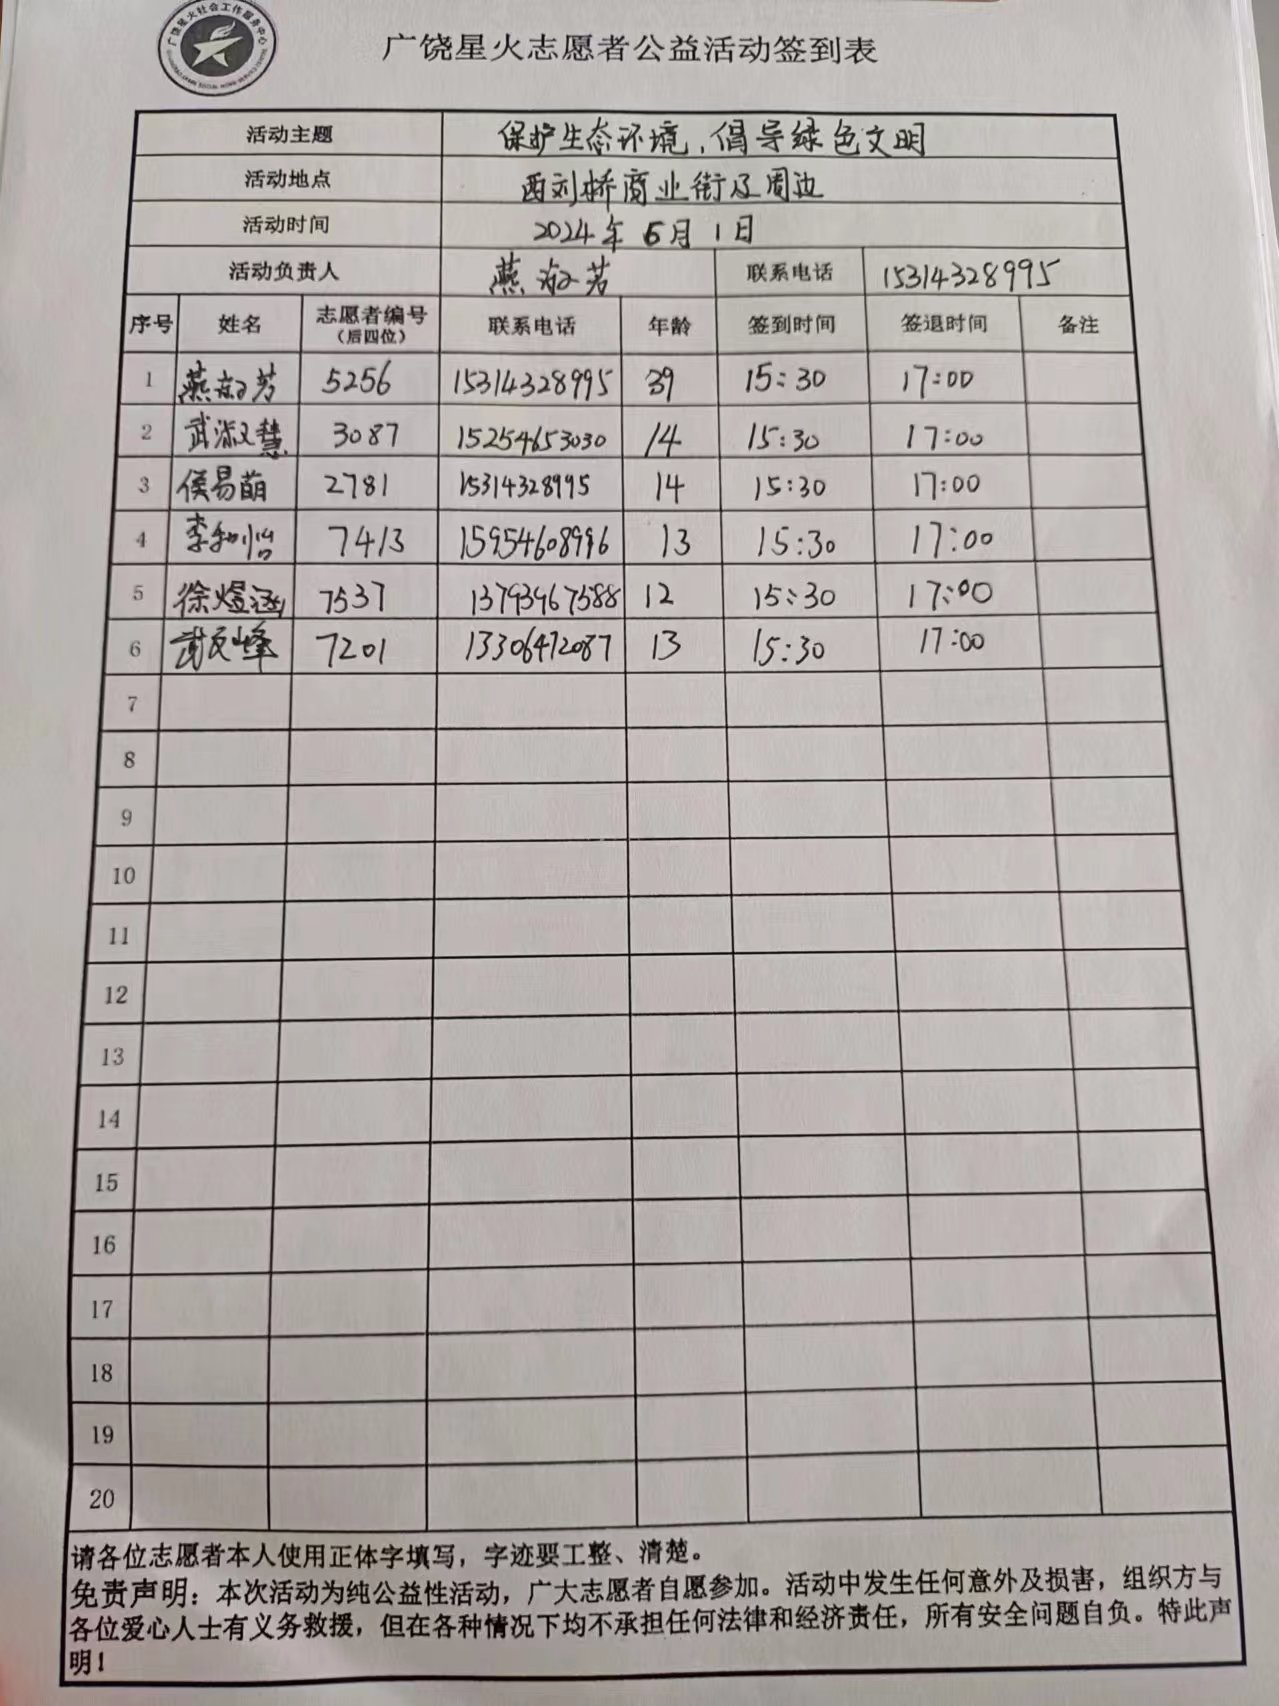 广饶星火社会工作服务中心
广饶星火志愿者公益活动签到表
活动主题 保护生态环境，倡导绿色文明
活动地点 西刘桥商业街及周边
活动时间 2024年6月1日
活动负责人 燕淑芳 联系电话 15314328995
序号 姓名 志愿者编号（后四位） 联系电话 年龄 签到时间 签退时间 备注
1 燕淑芳 5256 15314328995 39 15:30 17:00
2 武淑慧 3087 15254653030 14 15:30 17:00
3 侯易萌 2781 15314328995 14 15:30 17:00
4 李和怡 7413 15954608996 13 15:30 17:00
5 徐煜涵 7537 13793967588 12 15:30 17:00
6 武 峰 7201 13306472087 13 15:30 17:00
7
8
9
10
11
12
13
14
15
16
17
18
19
20
请各位志愿者本人使用正体字填写，字迹要工整、清楚。
免责声明：本次活动为纯公益性活动，广大志愿者自愿参加。活动中发生任何意外及损害，组织方与
各位爱心人士有义务救援，但在各种情况下均不承担任何法律和经济责任，所有安全问题自负。特此声
明！